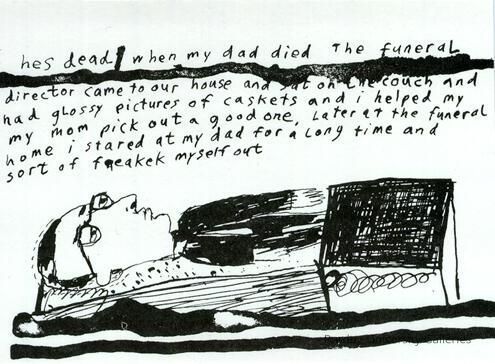 hes dead when my dad died The funeral
director came to our house and sat on the couch and
had glossy pictures of caskets and i helped my
my mom pick out a good one, Later at the funeral
home i stared at my dad for a long time and
sort of freakek myself out